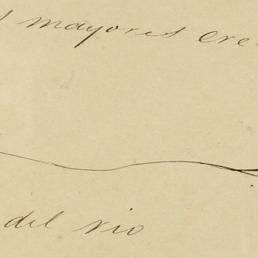 mayores cre
del rio